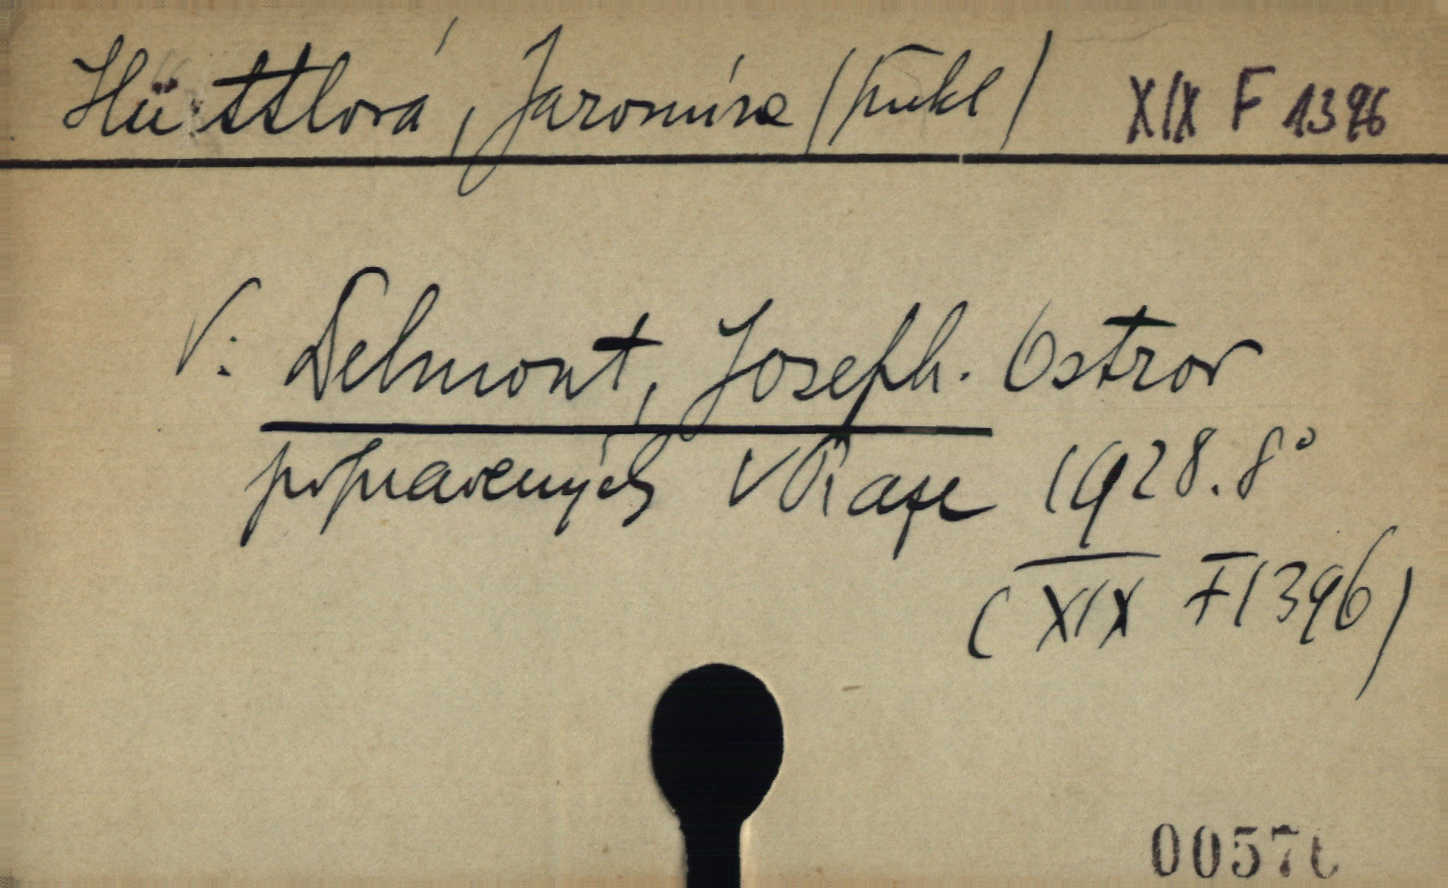 Hüttlová, Jaromíra (překl) XIX F 1396
V: Delmont, Joseph. Ostrov
popravených v Praze 1928. 8°
(XIX F 1396)